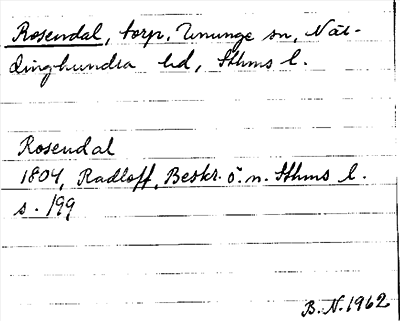 Rosendal, torp, Ununge sn, Nät-
dinghundra hd, Sthms l.
Rosendal
1804, Radloff, Beskr. ö. n. Sthms l.
s. 199
B.N. 1962